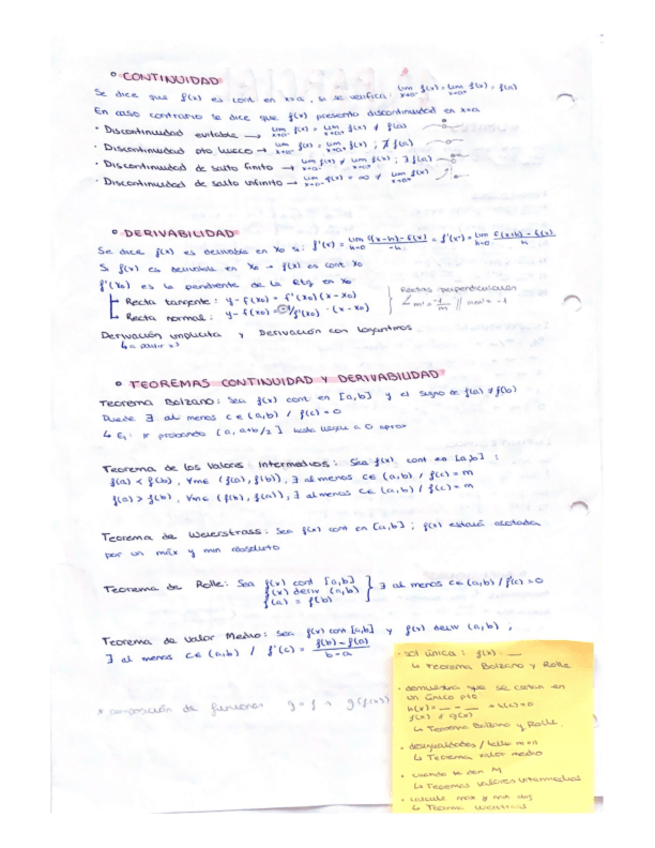 ° CONTINUIDAD
Se dice que f(x) es cont en x=a, si se verifica: lim x→a⁻ f(x) = lim x→a⁺ f(x) = f(a)
En caso contrario se dice que f(x) presenta discontinuidad en x=a
· Discontinuidad evitable → lim x→a⁻ f(x) = lim x→a⁺ f(x) ≠ f(a)
· Discontinuidad pto hueco → lim x→a⁻ f(x) = lim x→a⁺ f(x) ; ∄ f(a)
· Discontinuidad de salto finito → lim x→a⁻ f(x) ≠ lim x→a⁺ f(x) ; ∃ f(a)
· Discontinuidad de salto infinito → lim x→a⁻ f(x) = ∞ ≠ lim x→a⁺ f(x)
° DERIVABILIDAD
Se dice f(x) es derivable en x₀ si: f'(x) = lim h→0 f(x-h)-f(x) / -h = f'(x⁺) = lim h→0 f(x+h)-f(x) / h
Si f(x) es derivable en x₀ → f(x) es cont x₀
f'(x₀) es la pendiente de la Rtg en x₀
Recta tangente: y-f(x₀) = f'(x₀)(x-x₀)
Recta normal: y-f(x₀) = /f'(x₀) · (x-x₀)
Rectas perpendiculares
m' = -1/m // m·m' = -1
Derivación implícita y Derivación con logaritmos
° TEOREMAS CONTINUIDAD Y DERIVABILIDAD
Teorema Bolzano: Sea f(x) cont en [a,b] y el signo de f(a) ≠ f(b)
∃ al menos c ∈ (a,b) / f(c) = 0
probando (a, a+b/2] hasta llegue a 0 aprox
Teorema de los Valores Intermedios: Sea f(x) cont en [a,b] :
f(a) < f(b), ∀m∈ (f(a), f(b)), ∃ al menos c∈ (a,b) / f(c)=m
f(a) > f(b), ∀m∈ (f(b), f(a)), ∃ al menos c∈ (a,b) / f(c)=m
Teorema de Weierstrass: Sea f(x) cont en [a,b] ; f(x) estará acotada
por un máx y min absoluto
Teorema de Rolle: Sea f(x) cont [a,b]
f(x) deriv (a,b)
f(a) = f(b)
} ∃ al menos c∈ (a,b) / f'(c) = 0
Teorema de Valor Medio: Sea f(x) cont [a,b] y f(x) deriv (a,b) ,
∃ al menos c∈ (a,b) / f'(c) = f(b)-f(a) / b-a
* composición de funciones g∘f → g(f(x))
· sol única : f(x) = __
↳ Teorema Bolzano y Rolle
· demuestra que se cortan en
un único pto
h(x) = __ - __ → h(c)=0
f(x) g(x)
↳ Teorema Bolzano y Rolle.
· desigualdades /
↳ Teorema valor medio
· cuando te den M
↳ Teoremas valores intermedios
· calcula max y min abs
↳ Teorema Weierstrass